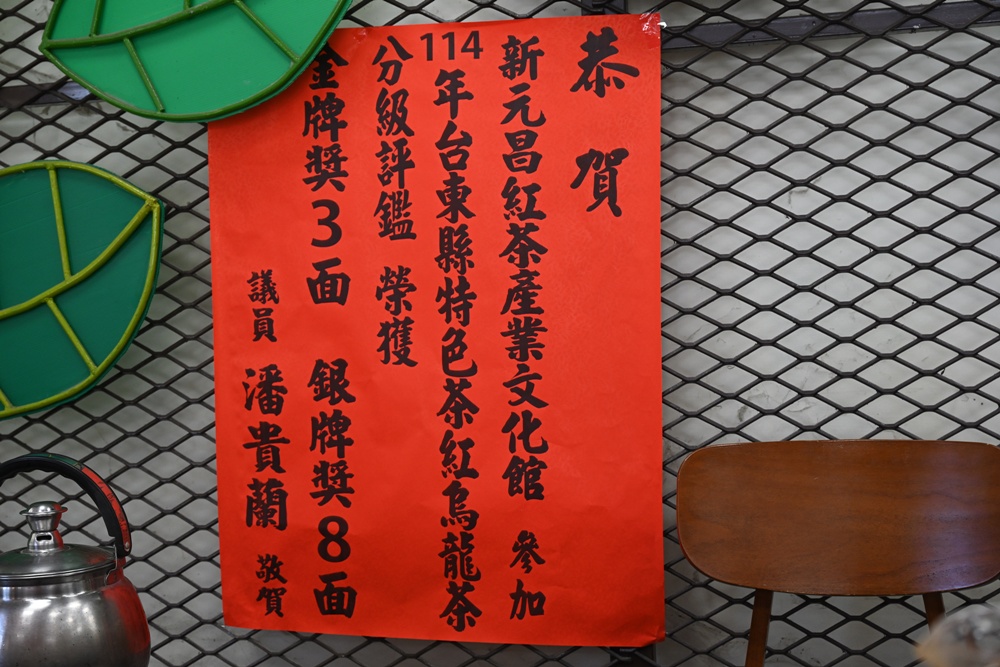 恭賀
新元昌紅茶產業文化館 參加
114年台東縣特色茶紅烏龍茶
分級評鑑 榮獲
金牌獎3面 銀牌獎8面
議員 潘貴蘭 敬賀